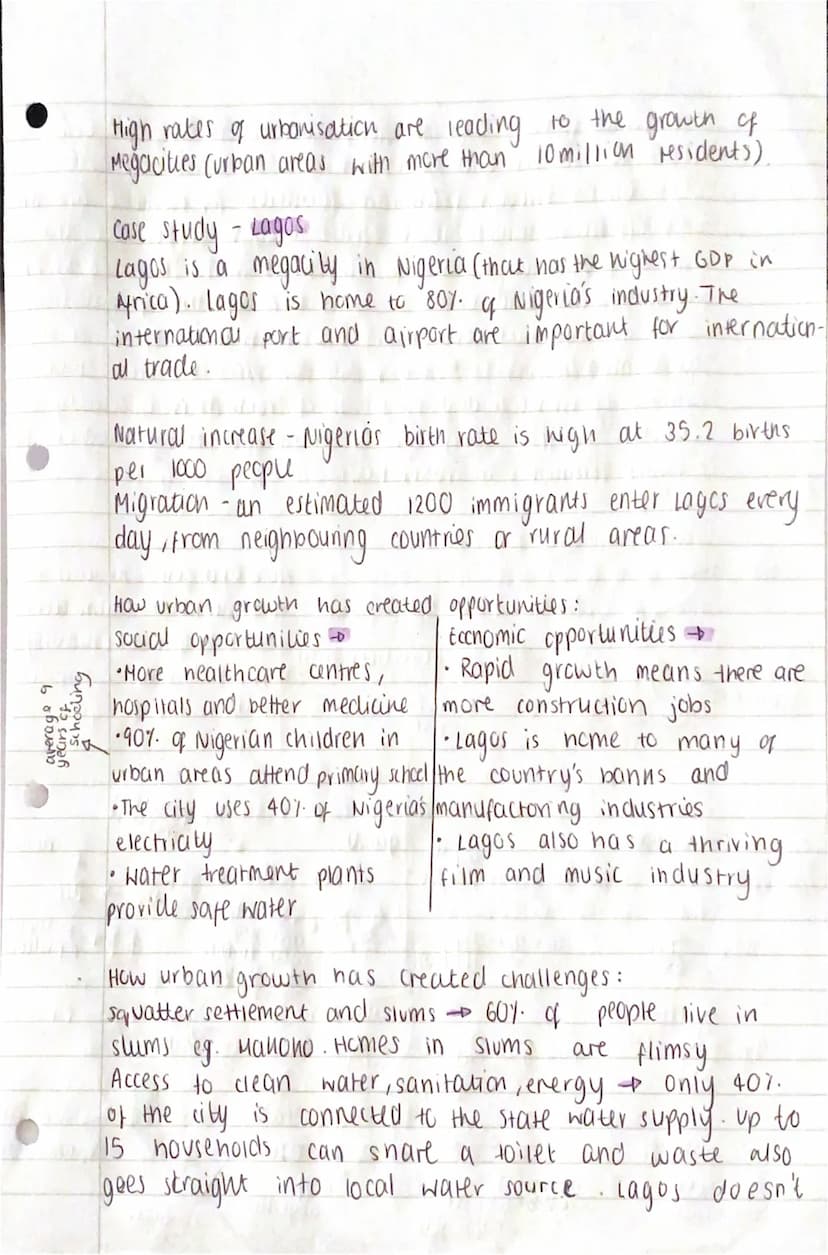 High rates of urbanisation are leading to the growth of
Megacities (urban areas with more than 10 million residents)
Case study - Lagos
Lagos is a megacity in Nigeria (that has the highest GDP in
Africa). Lagos is home to 80% of Nigeria's industry. The
international port and airport are important for internation-
al trade.
Natural increase - Nigeria's birth rate is high at 35.2 births
per 1000 people
Migration - an estimated 1200 immigrants enter Lagos every
day, from neighbouring countries or rural areas.
How urban growth has created opportunities:
Social opportunities →
•More healthcare centres,
hospitals and better medicine
•90% of Nigerian children in
urban areas attend primary school
average 9
years of
schooling
•The city uses 40% of Nigeria's
electricity
• Water treatment plants
provide safe water
Economic opportunities →
• Rapid growth means there are
more construction jobs
• Lagos is home to many of
the country's banks and
manufactoring industries
• Lagos also has a thriving
film and music industry
How urban growth has created challenges:
Squatter settlement and slums → 60% of people live in
slums eg. Makoko. Homes in slums are flimsy
Access to clean water, sanitation, energy → Only 40%
of the city is connected to the state water supply. Up to
15 households can share a toilet and waste also
goes straight into local water source. Lagos doesn't